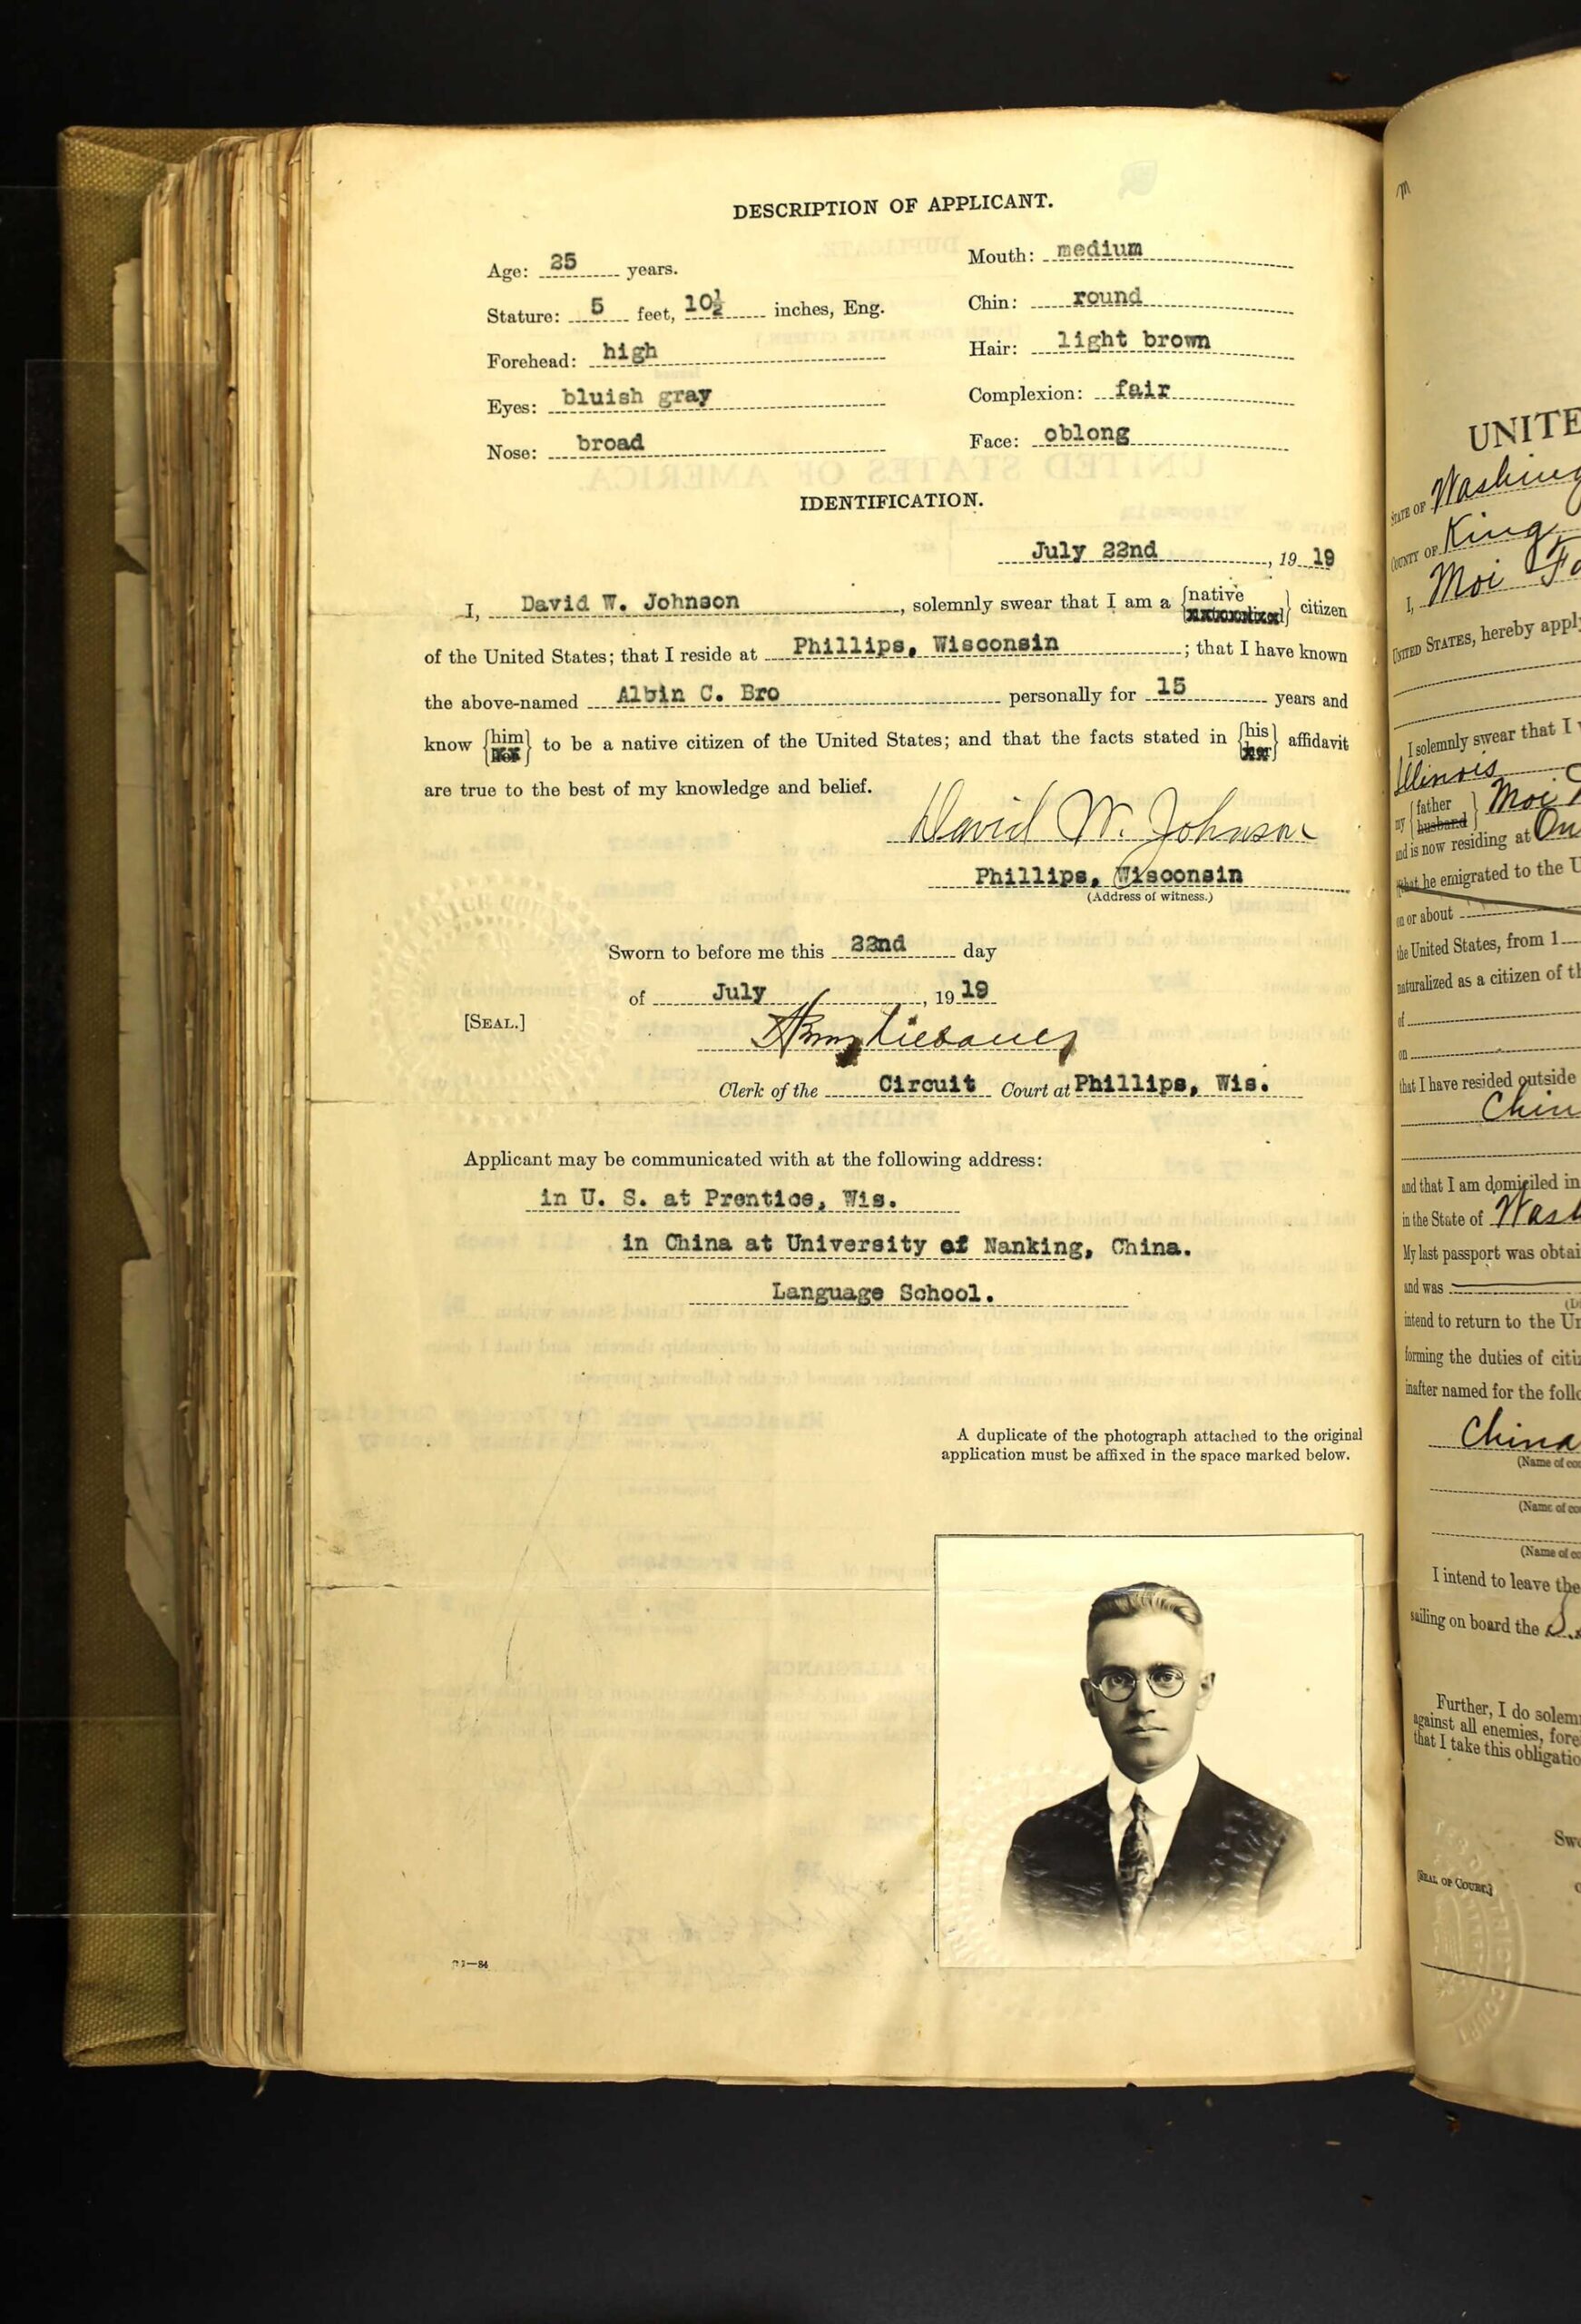 DESCRIPTION OF APPLICANT.
Age: 25 years.
Stature: 5 feet, 10½ inches, Eng.
Forehead: high
Eyes: bluish gray
Nose: broad
Mouth: medium
Chin: round
Hair: light brown
Complexion: fair
Face: oblong
IDENTIFICATION.
July 22nd, 19 19
I, David W. Johnson, solemnly swear that I am a {native naturalized} citizen
of the United States; that I reside at Phillips, Wisconsin; that I have known
the above-named Albin C. Bro personally for 15 years and
know {him her} to be a native citizen of the United States; and that the facts stated in {his her} affidavit
are true to the best of my knowledge and belief.
David W. Johnson
Phillips, Wisconsin
(Address of witness.)
Sworn to before me this 22nd day
of July, 19 19
[SEAL.]
Clerk of the Circuit Court at Phillips, Wis.
Applicant may be communicated with at the following address:
in U. S. at Prentice, Wis.
in China at University of Nanking, China.
Language School.
A duplicate of the photograph attached to the original
application must be affixed in the space marked below.
UNITE
STATE OF Washing
COUNTY OF King
I, Moi
UNITED STATES, hereby apply
I solemnly swear that I
Illinois
my {father husband} Moi
and is now residing at
that he emigrated to the U
on or about
the United States, from 1
naturalized as a citizen of th
of
on
that I have resided outside
Chin
and that I am domiciled in
in the State of Wash
My last passport was obtai
and was
intend to return to the Un
forming the duties of citiz
inafter named for the follo
China
(Name of cou
(Name of cou
(Name of co
I intend to leave the
sailing on board the
Further, I do solem
against all enemies, fore
that I take this obligatio
Swo
[SEAL OF COURT.]